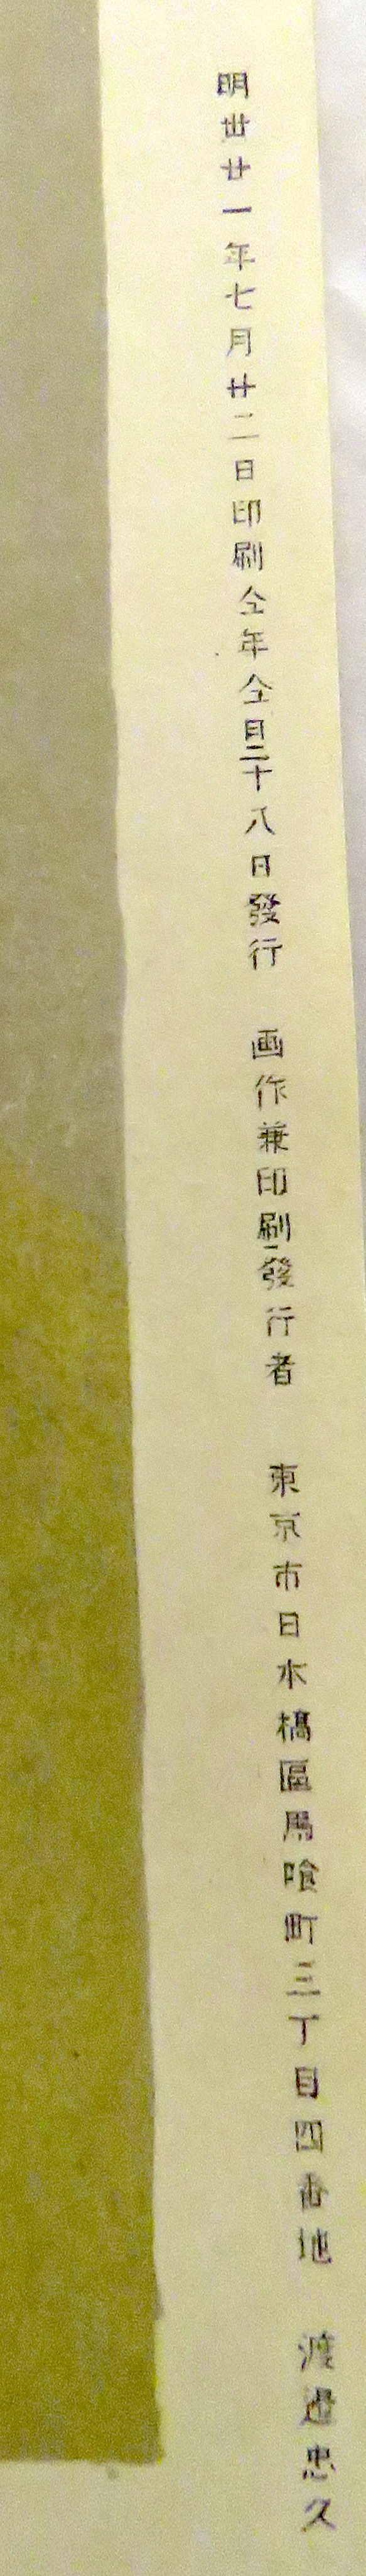 明世廿一年七月廿二日印刷仝年仝月二十八日發行 画作兼印刷發行者 東京市日本橋區馬喰町三丁目四番地 渡邉忠久